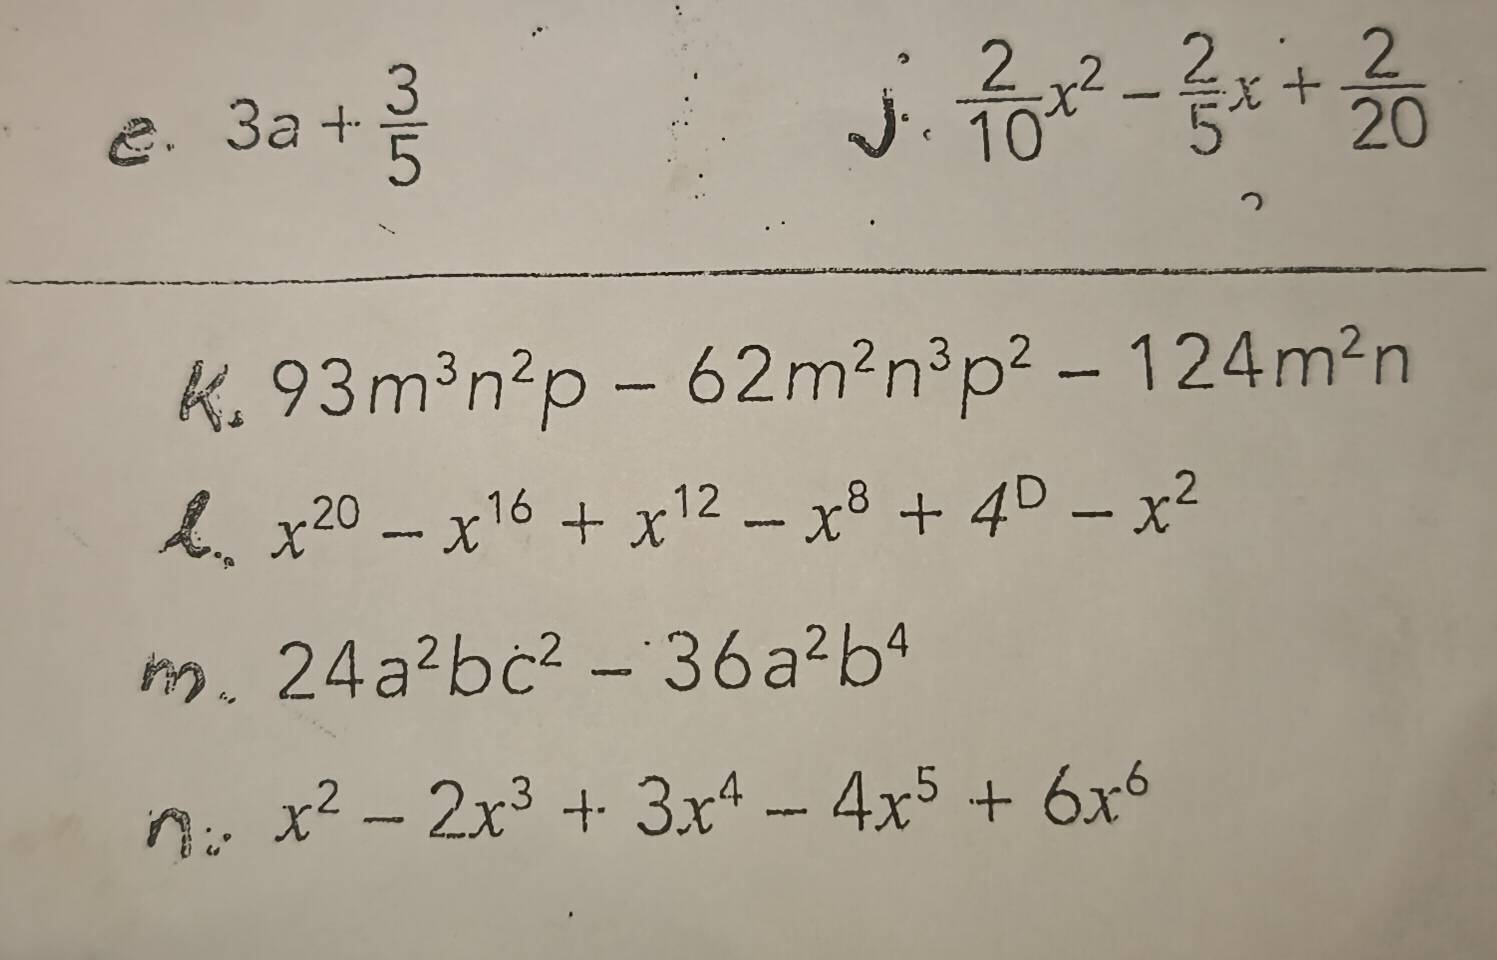 e. 3a + 3/5
j. 2/10 x² − 2/5 x + 2/20
k. 93m³n²p − 62m²n³p² − 124m²n
l. x²⁰ − x¹⁶ + x¹² − x⁸ + 4ᴰ − x²
m. 24a²bc² − 36a²b⁴
n. x² − 2x³ + 3x⁴ − 4x⁵ + 6x⁶